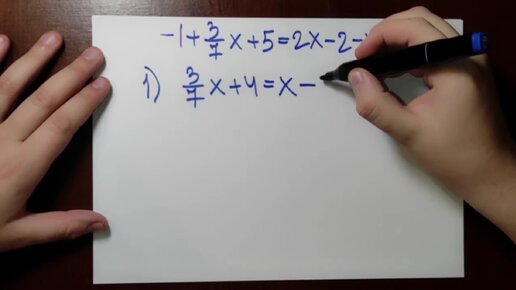 -1+3/7x+5=2x-2-
1) 3/7x+4=x-